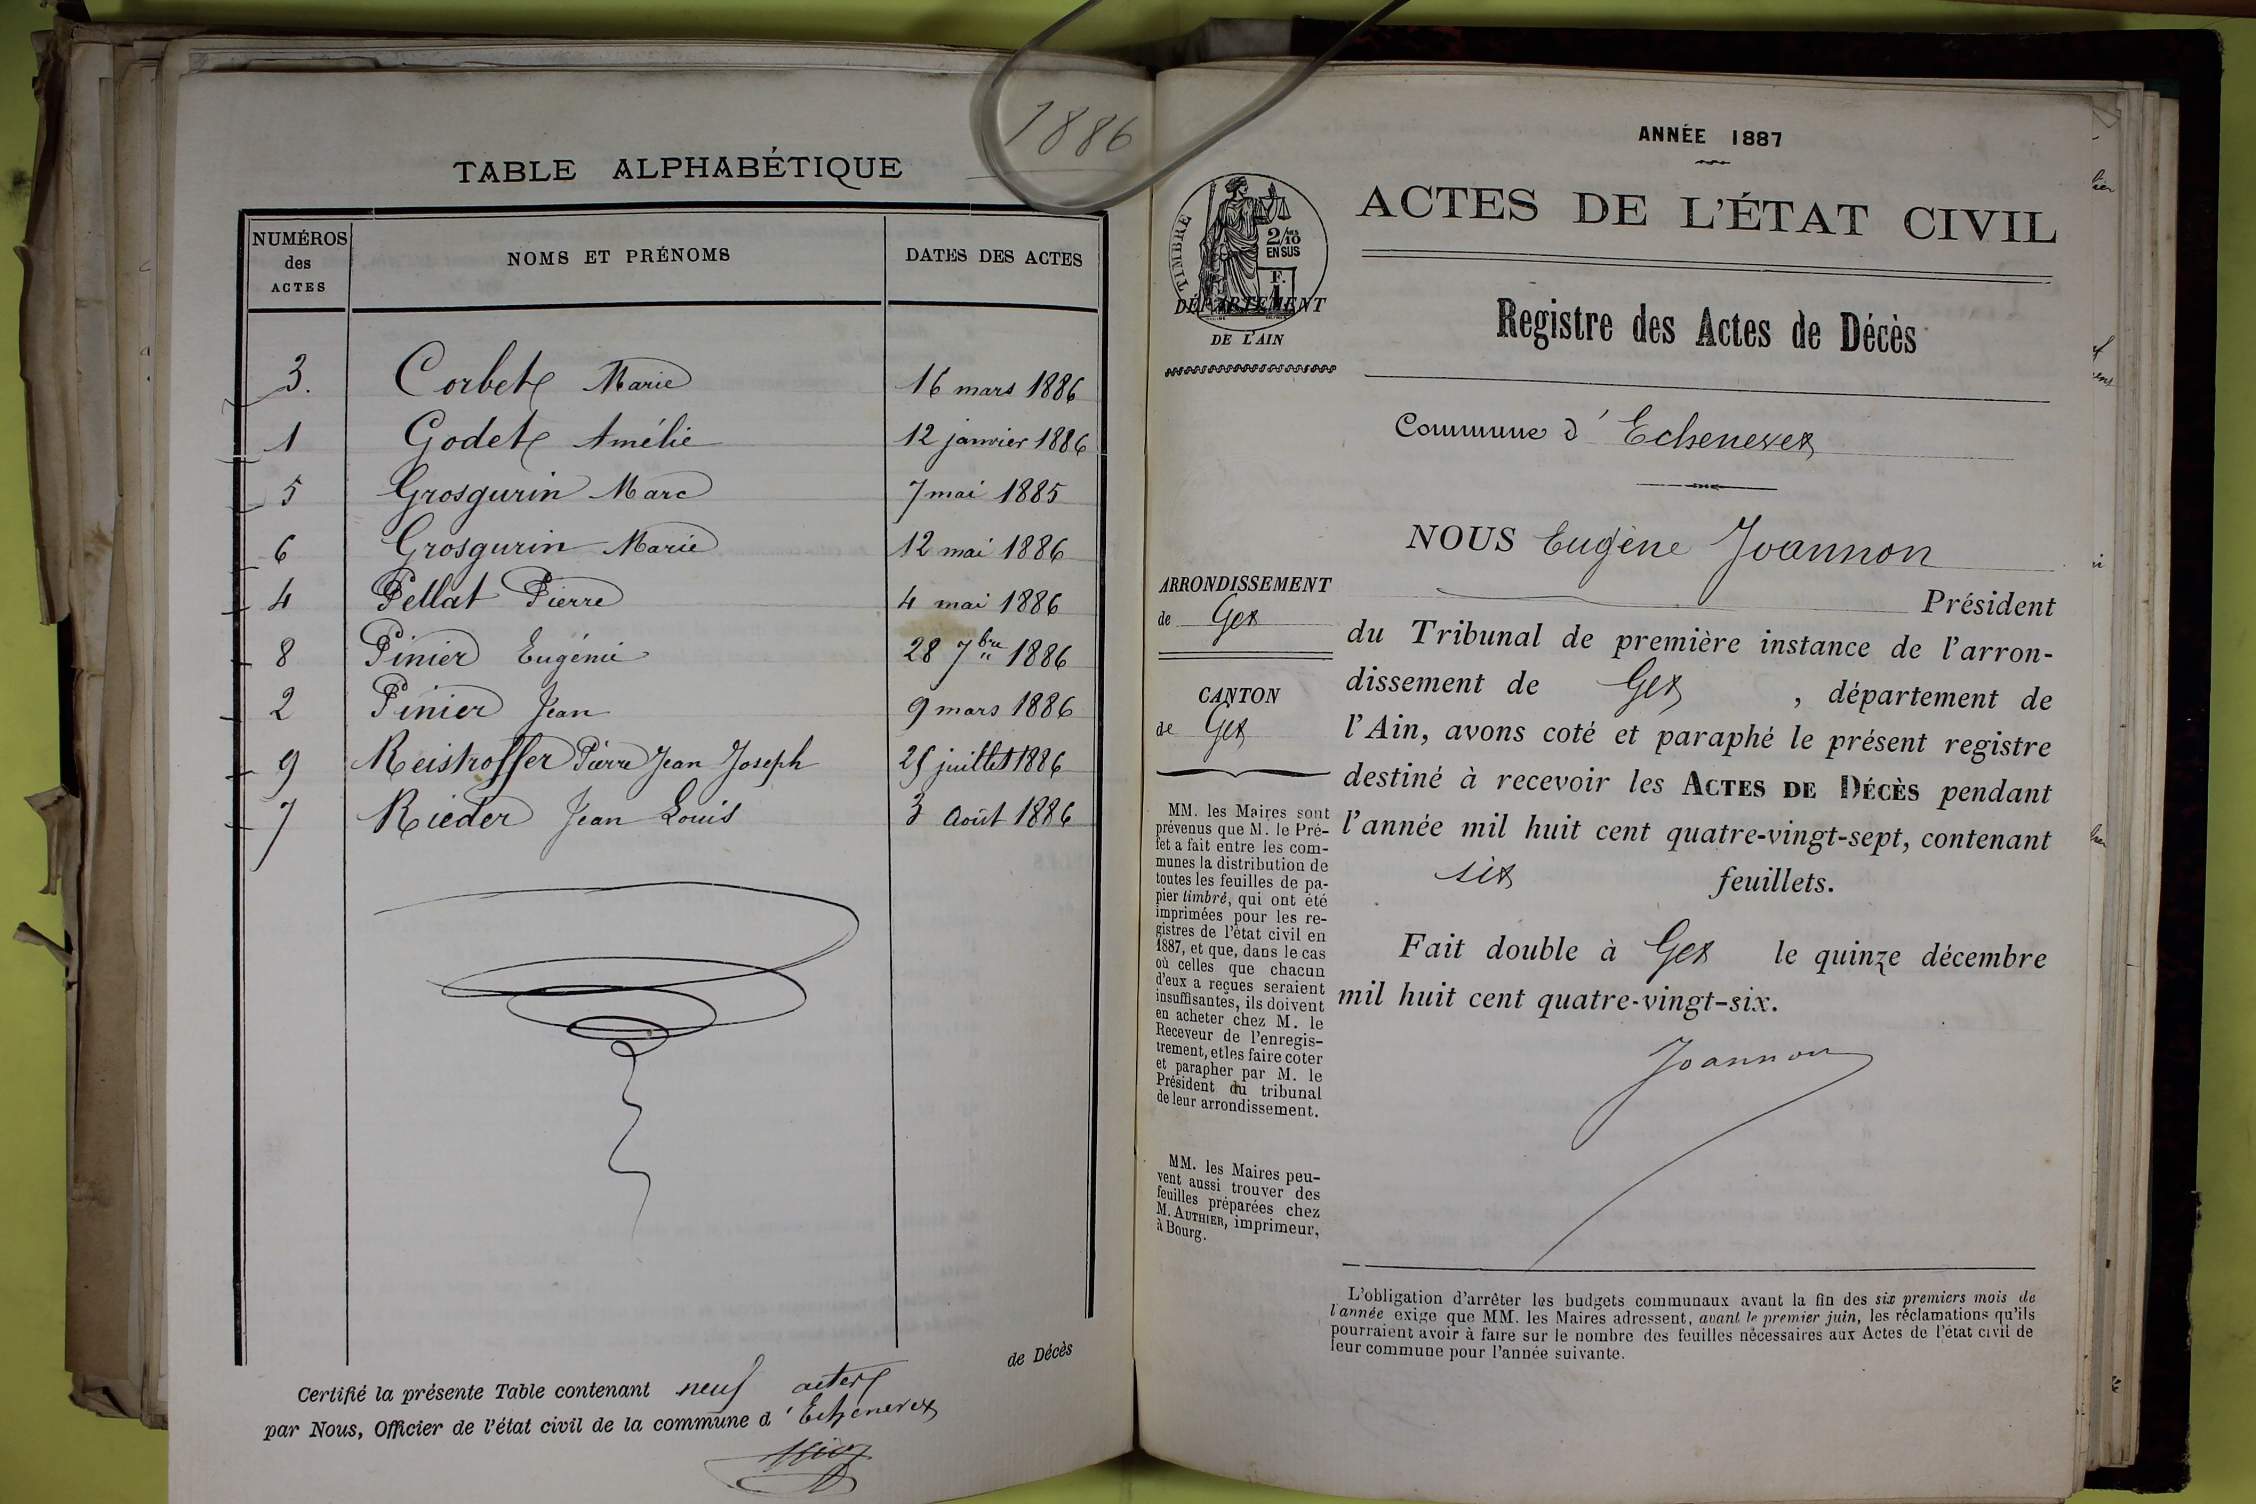 1886
TABLE ALPHABÉTIQUE
NUMÉROS des ACTES NOMS ET PRÉNOMS DATES DES ACTES
3. Corbet Marie 16 mars 1886
1 Godet Amélie 12 janvier 1886
5 Grosgurin Marc 7 mai 1885
6 Grosgurin Marie 12 mai 1886
4 Pellat Pierre 4 mai 1886
8 Pinier Eugénie 28 7bre 1886
2 Pinier Jean 9 mars 1886
9 Reistroffer Pierre Jean Joseph 25 juillet 1886
7 Rieder Jean Louis 3 Août 1886
de Décès
Certifié la présente Table contenant neuf actes
par Nous, Officier de l'état civil de la commune d'Echenevex
ANNÉE 1887
ACTES DE L'ÉTAT CIVIL
TIMBRE
2/10
EN SUS
F.
1
DÉPARTEMENT
DE L'AIN
Registre des Actes de Décès
Commune d'Echenevex
NOUS Eugène Joannon
Président
du Tribunal de première instance de l'arron-
dissement de Gex, département de
l'Ain, avons coté et paraphé le présent registre
destiné à recevoir les ACTES DE DÉCÈS pendant
l'année mil huit cent quatre-vingt-sept, contenant
six feuillets.
Fait double à Gex le quinze décembre
mil huit cent quatre-vingt-six.
Joannon
ARRONDISSEMENT
de Gex
CANTON
de Gex
MM. les Maires sont
prévenus que M. le Pré-
fet a fait entre les com-
munes la distribution de
toutes les feuilles de pa-
pier timbré, qui ont été
imprimées pour les re-
gistres de l'état civil en
1887, et que, dans le cas
où celles que chacun
d'eux a reçues seraient
insuffisantes, ils doivent
en acheter chez M. le
Receveur de l'enregis-
trement, et les faire coter
et parapher par M. le
Président du tribunal
de leur arrondissement.
MM. les Maires peu-
vent aussi trouver des
feuilles préparées chez
M. AUTHIER, imprimeur,
à Bourg.
L'obligation d'arrêter les budgets communaux avant la fin des six premiers mois de
l'année exige que MM. les Maires adressent, avant le premier juin, les réclamations qu'ils
pourraient avoir à faire sur le nombre des feuilles nécessaires aux Actes de l'état civil de
leur commune pour l'année suivante.